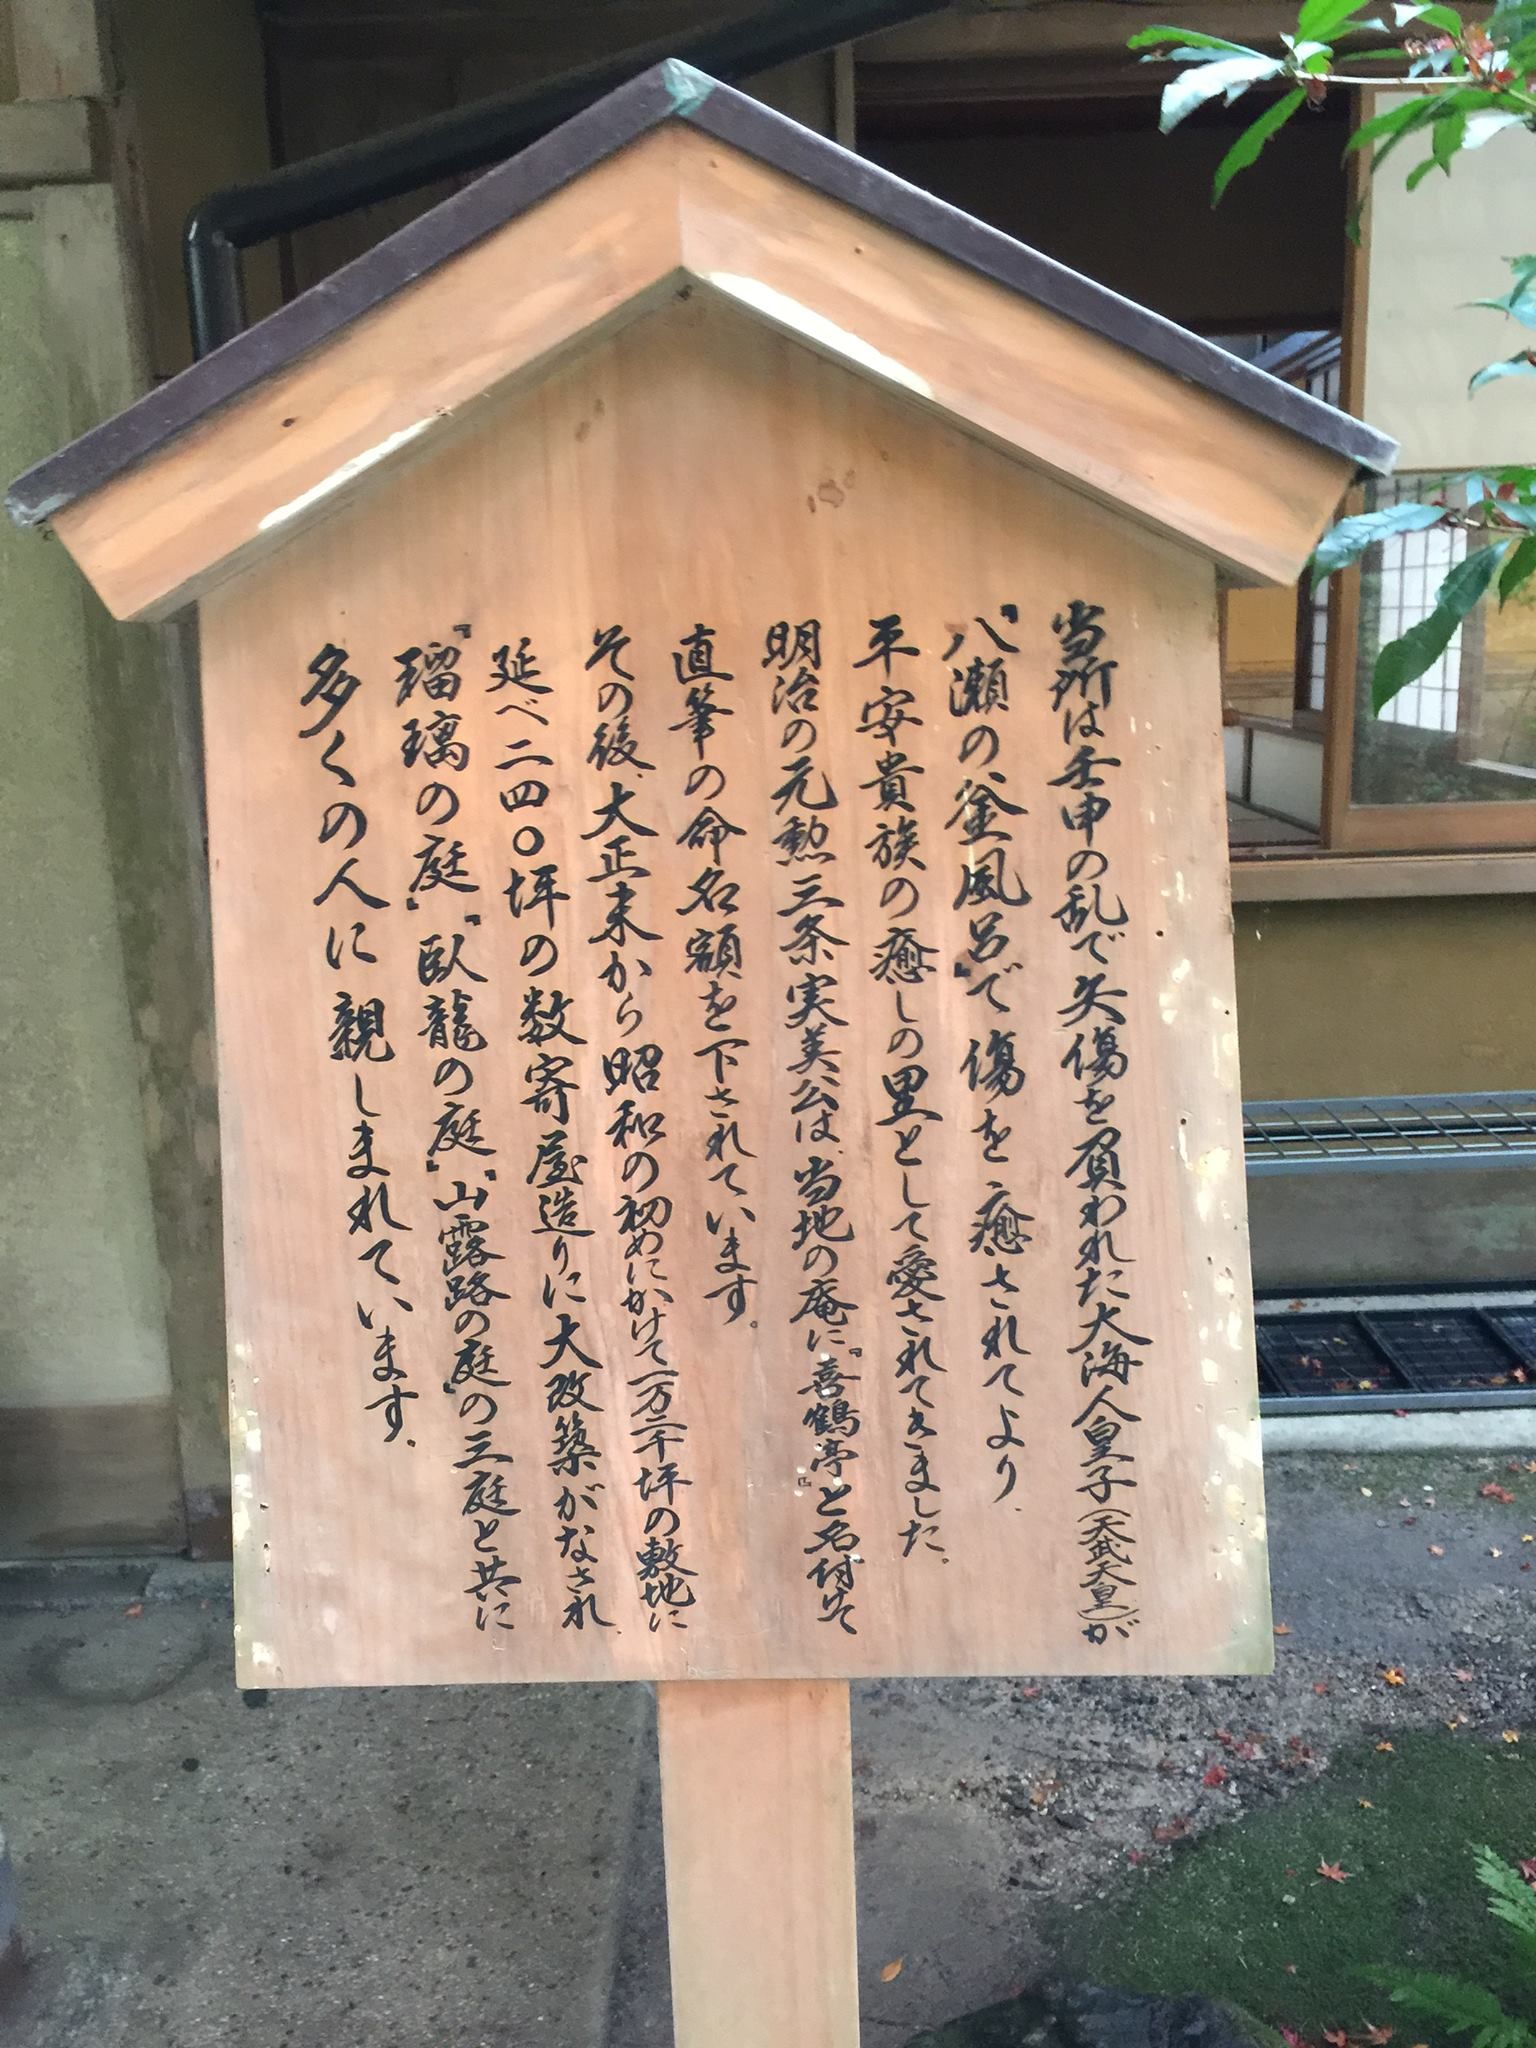 当所は壬申の乱で矢傷を負われた大海人皇子(天武天皇)が
『八瀬の釜風呂』で傷を癒されてより、
平安貴族の癒しの里として愛されてきました。
明治の元勲三条実美公は、当地の庵に『喜鶴亭』と名付けて
直筆の命名額を下されています。
その後、大正末から昭和の初めにかけて一万二千坪の敷地に
延べ二四〇坪の数寄屋造りに大改築がなされ、
『瑠璃の庭』『臥龍の庭』『山露路の庭』の三庭と共に
多くの人に親しまれています。